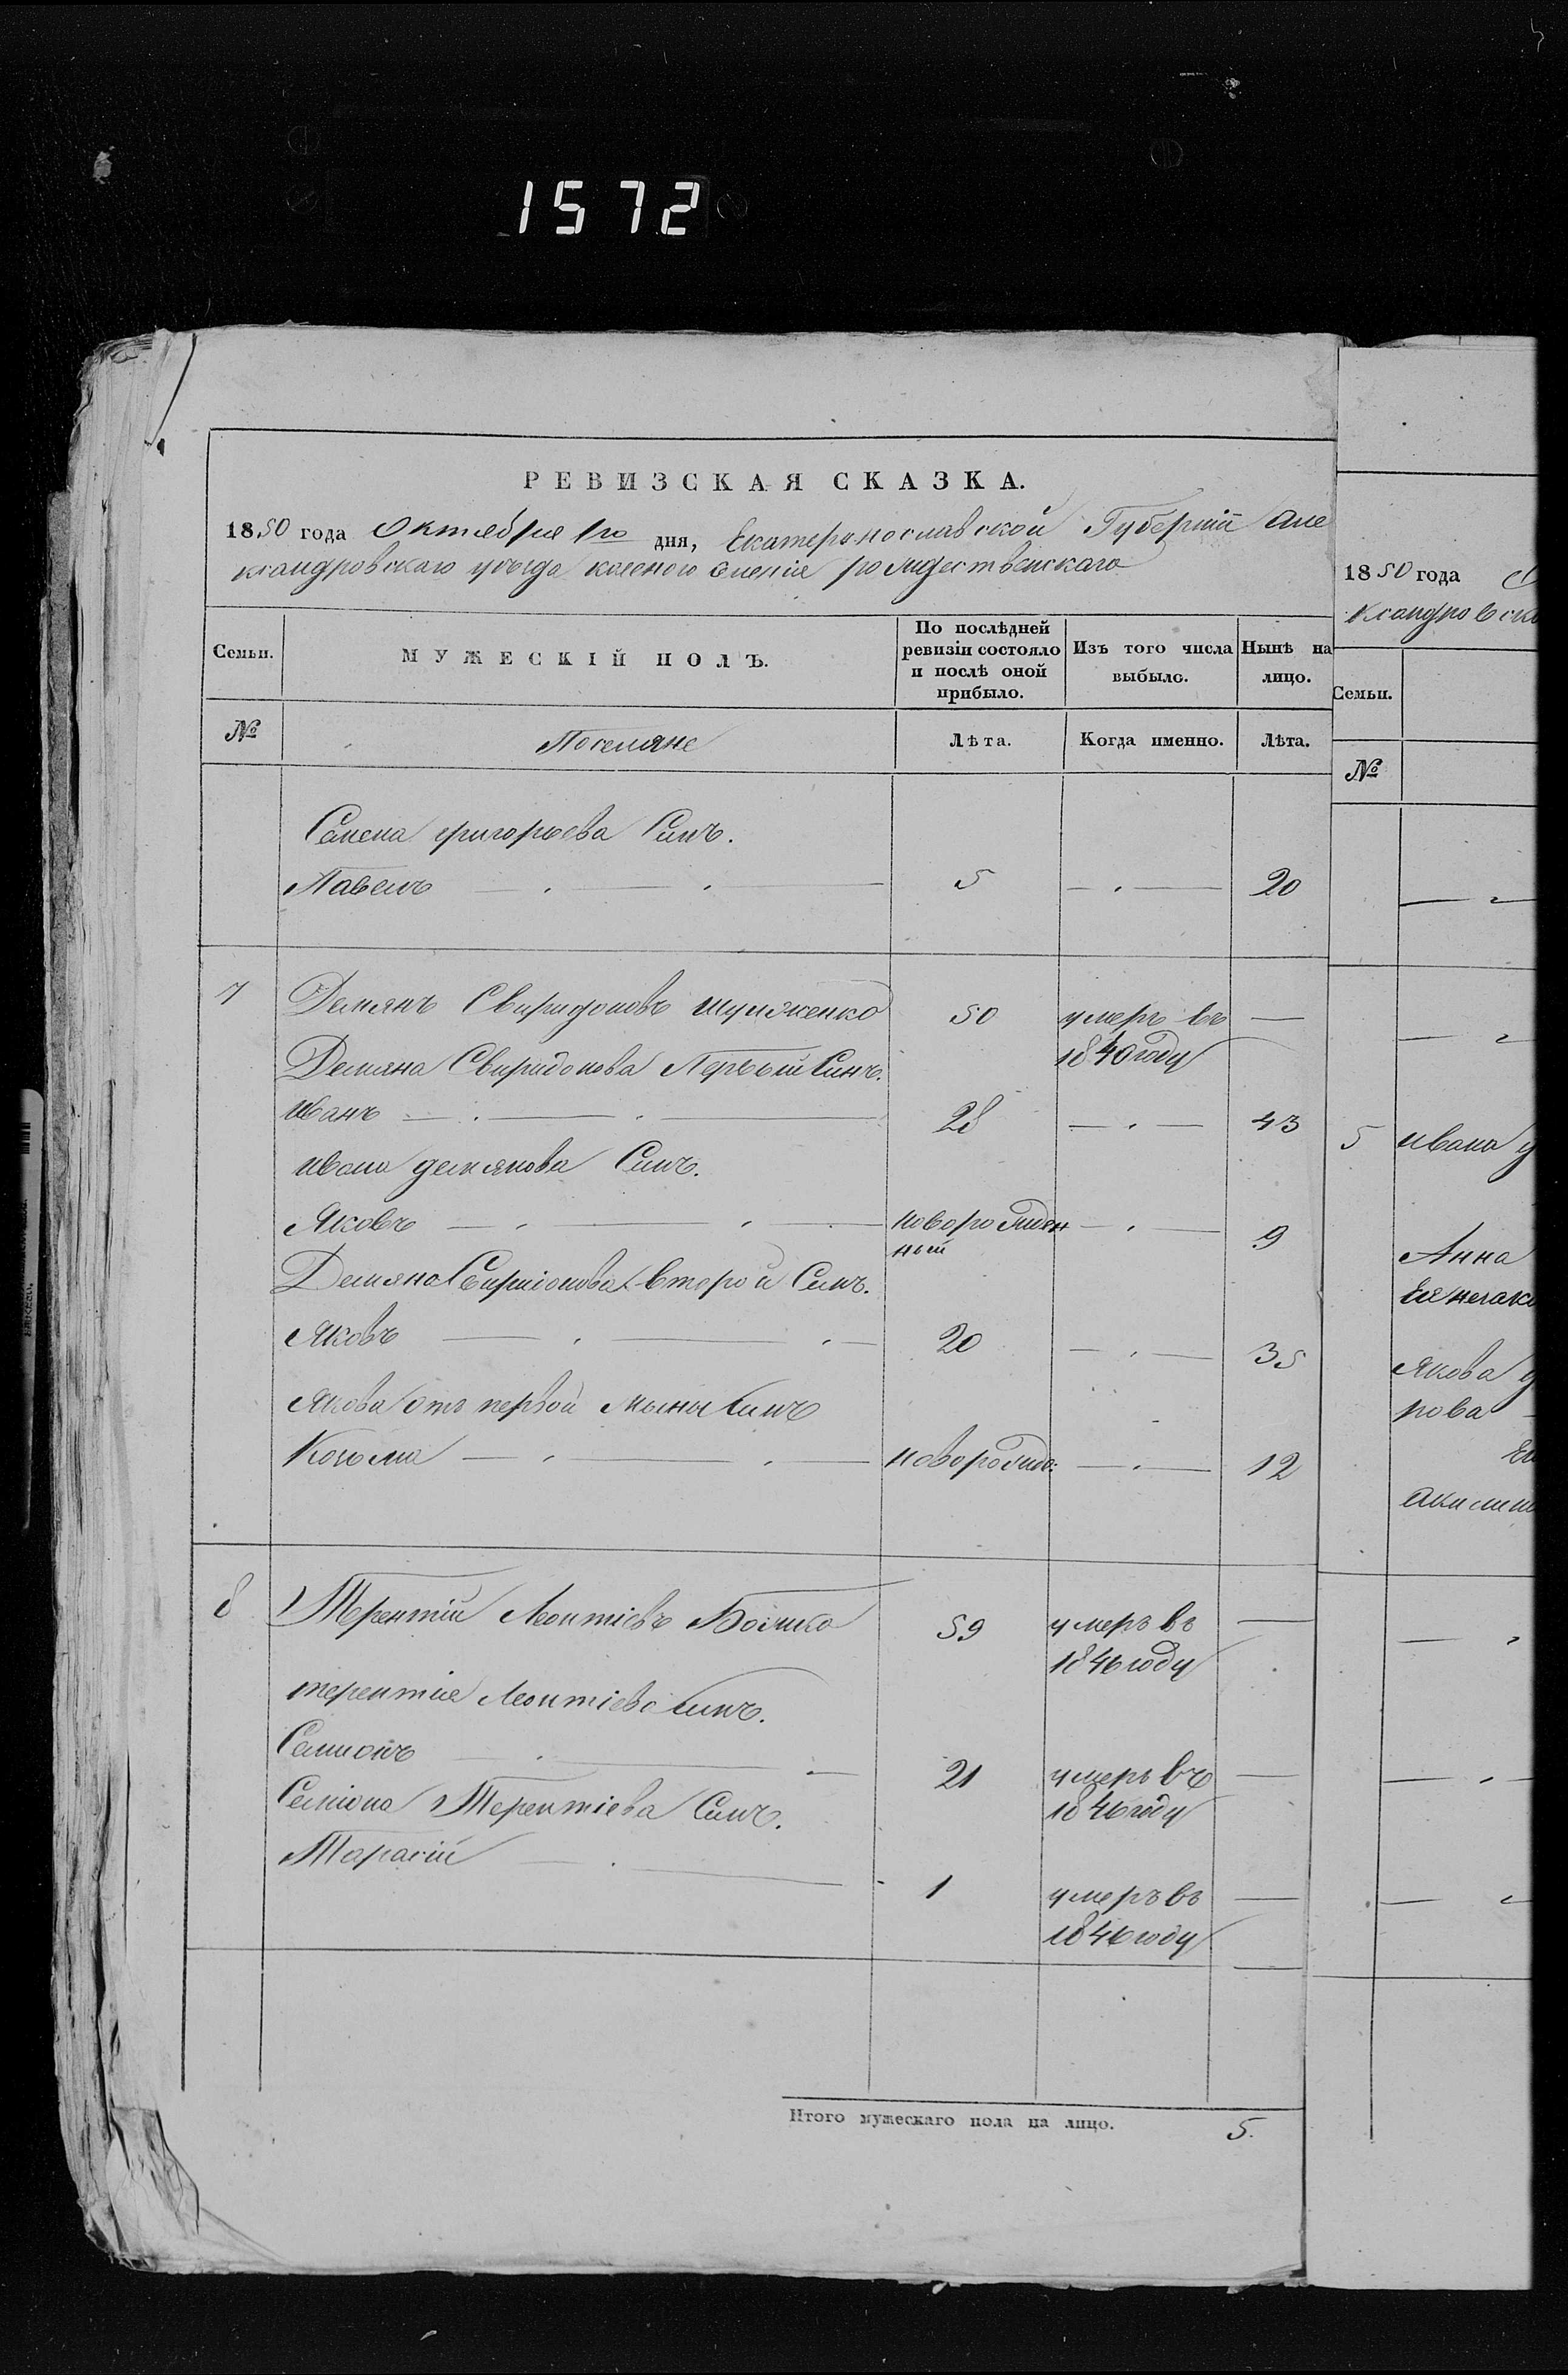 1572
РЕВИЗСКАЯ СКАЗКА.
1850 года Октября 1го дня, Екатеринославской Губерніи Але
ксандровскаго уѣзда казеного селенія рождественскаго
Семьи.
МУЖЕСКІЙ ПОЛЪ.
По послѣдней ревизіи состояло и послѣ оной прибыло.
Изъ того числа выбыло.
Нынѣ на лицо.
№
Поселяне
Лѣта.
Когда именно.
Лѣта.
Семена григорьева Синъ.
Павелъ 5 20
7 Демянъ Свиридоновъ 50 умеръ въ
1840 году
Демяна Свиридонова Первый Синъ.
иванъ 28 43
ивана демянова Синъ.
Яковъ новорожден
ный 9
Демяна Спиридонова второй Синъ.
Яковъ 20 35
Якова отъ первой жыны Синъ
Козьма новорожде: 12
8 Терентій Леонтіевъ Божко 59 умеръ въ
1846 году
терентія Леонтіева синъ.
Семионъ 21 умеръ въ
1846 году
Семіона Терентіева Синъ.
Тарасій 1 умеръ въ
1846 году
Итого мужескаго пола на лицо. 5.
1850 года
ксандровска
Семьи.
№
5 ивана
Анна
Якова
рова